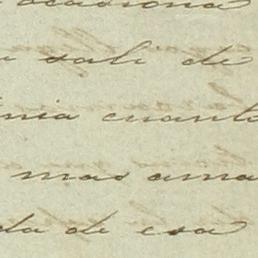 ocasiona
sali de
cuanto
mas ama
da de esa